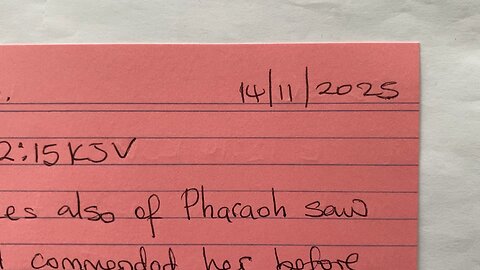 14/11/2025
2:15 KJV
es also of Pharaoh saw
commended her before